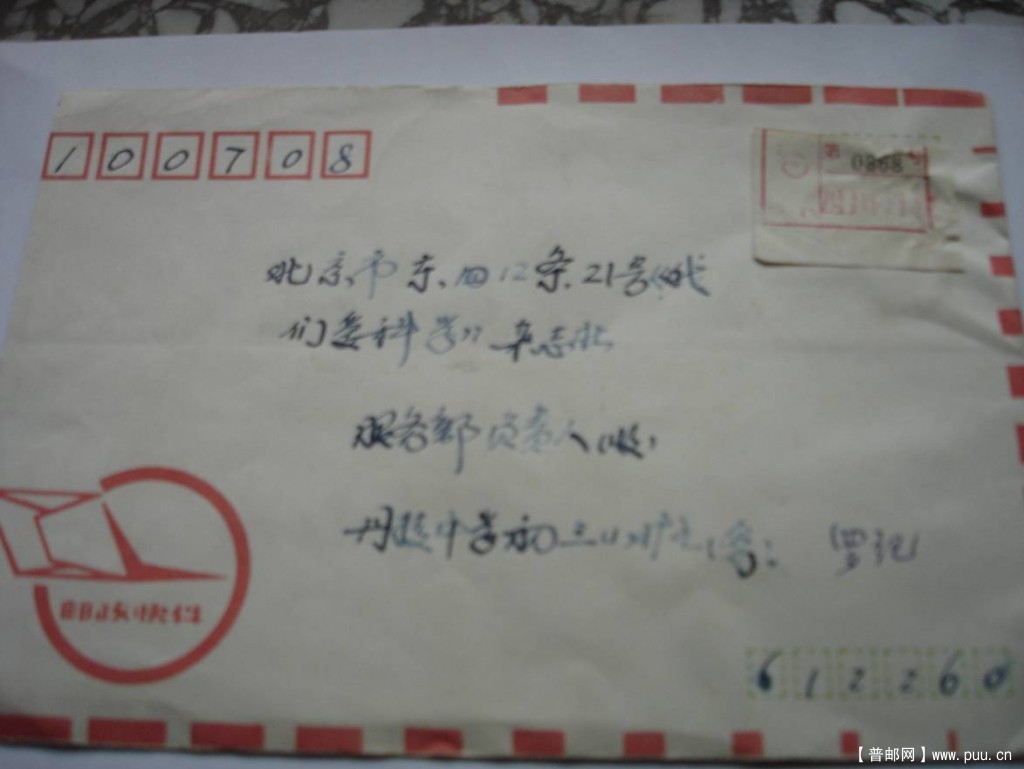 100708
0868
北京市东四12条21号《我
们爱科学》杂志社
服务部负责人（收）
丹
中学初三
罗
邮政快件
612260
【普邮网】www.puu.cn